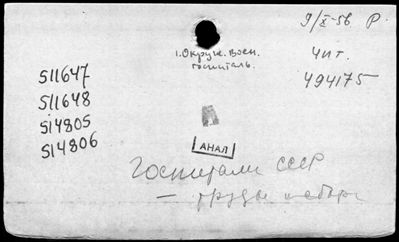 9/X-56 Р.
1. Окруж. воен.
госпиталь.
Чит.
494175
511647
511648
514805
514806
АНАЛ
Госпитали СССР
— труды и сборн